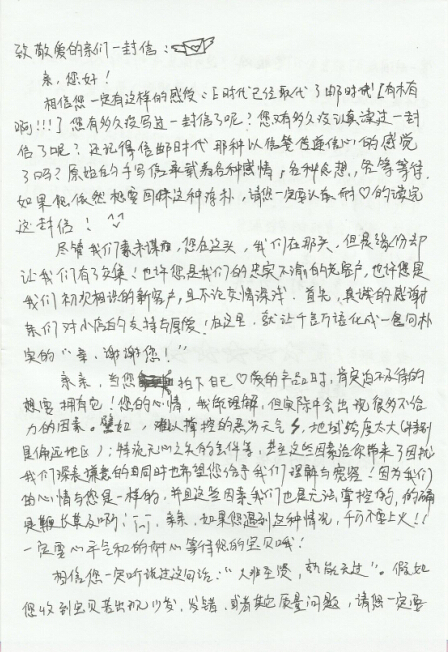 致敬爱的亲们一封信：
亲，您好！
相信您一定有这样的感受：E时代已经取代了邮时代！[有木有
啊!!!]您有多久没写过一封信了呢？您又有多久没认真读过一封
信了呢？还记得信邮时代那种以信笺普连信心的感觉
了吗？原始的手写信承载着各种感情，各种念想，各等等待。
如果您依然想要回味这种淳朴，请您一定要认真耐♡的读完
这封信！
尽管我们素未谋面，您在这头，我们在那头，但是缘份却
让我们有了交集！也许您是我们的忠实不渝的老客户，也许您是
我们初次相识的新客户，且不论交情深浅。首先，真诚的感谢
亲们对小店的支持与厚爱！在这里，就让千言万语化成一句闪朴
实的“亲，谢谢您！”
亲亲，当您拍下自己♡爱的产品时，肯定迫不及待的
想要拥有它！您的心情，我能理解，但实际中会出现很多不给
力的因素。譬如，难以掌控的恶劣天气，地域跨度太大(特别
是偏远地区)；特派无心之失的丢件等，若这些因素给你带来了困扰
我们深表歉意的同时也希望您给予我们理解与宽容！因为我们
的心情与您是一样的，并且这些因素我们也是无法掌控的，的确
是鞭长莫及啊，亲亲，如果您遇到这种情况，千万不要上火!!
一定要心平气和的耐心等待您的宝贝哦！
相信您一定听说过这句话：“人非圣贤，孰能无过”。假如
您收到宝贝若出现少发、发错、或者其它质量问题，请您一定要